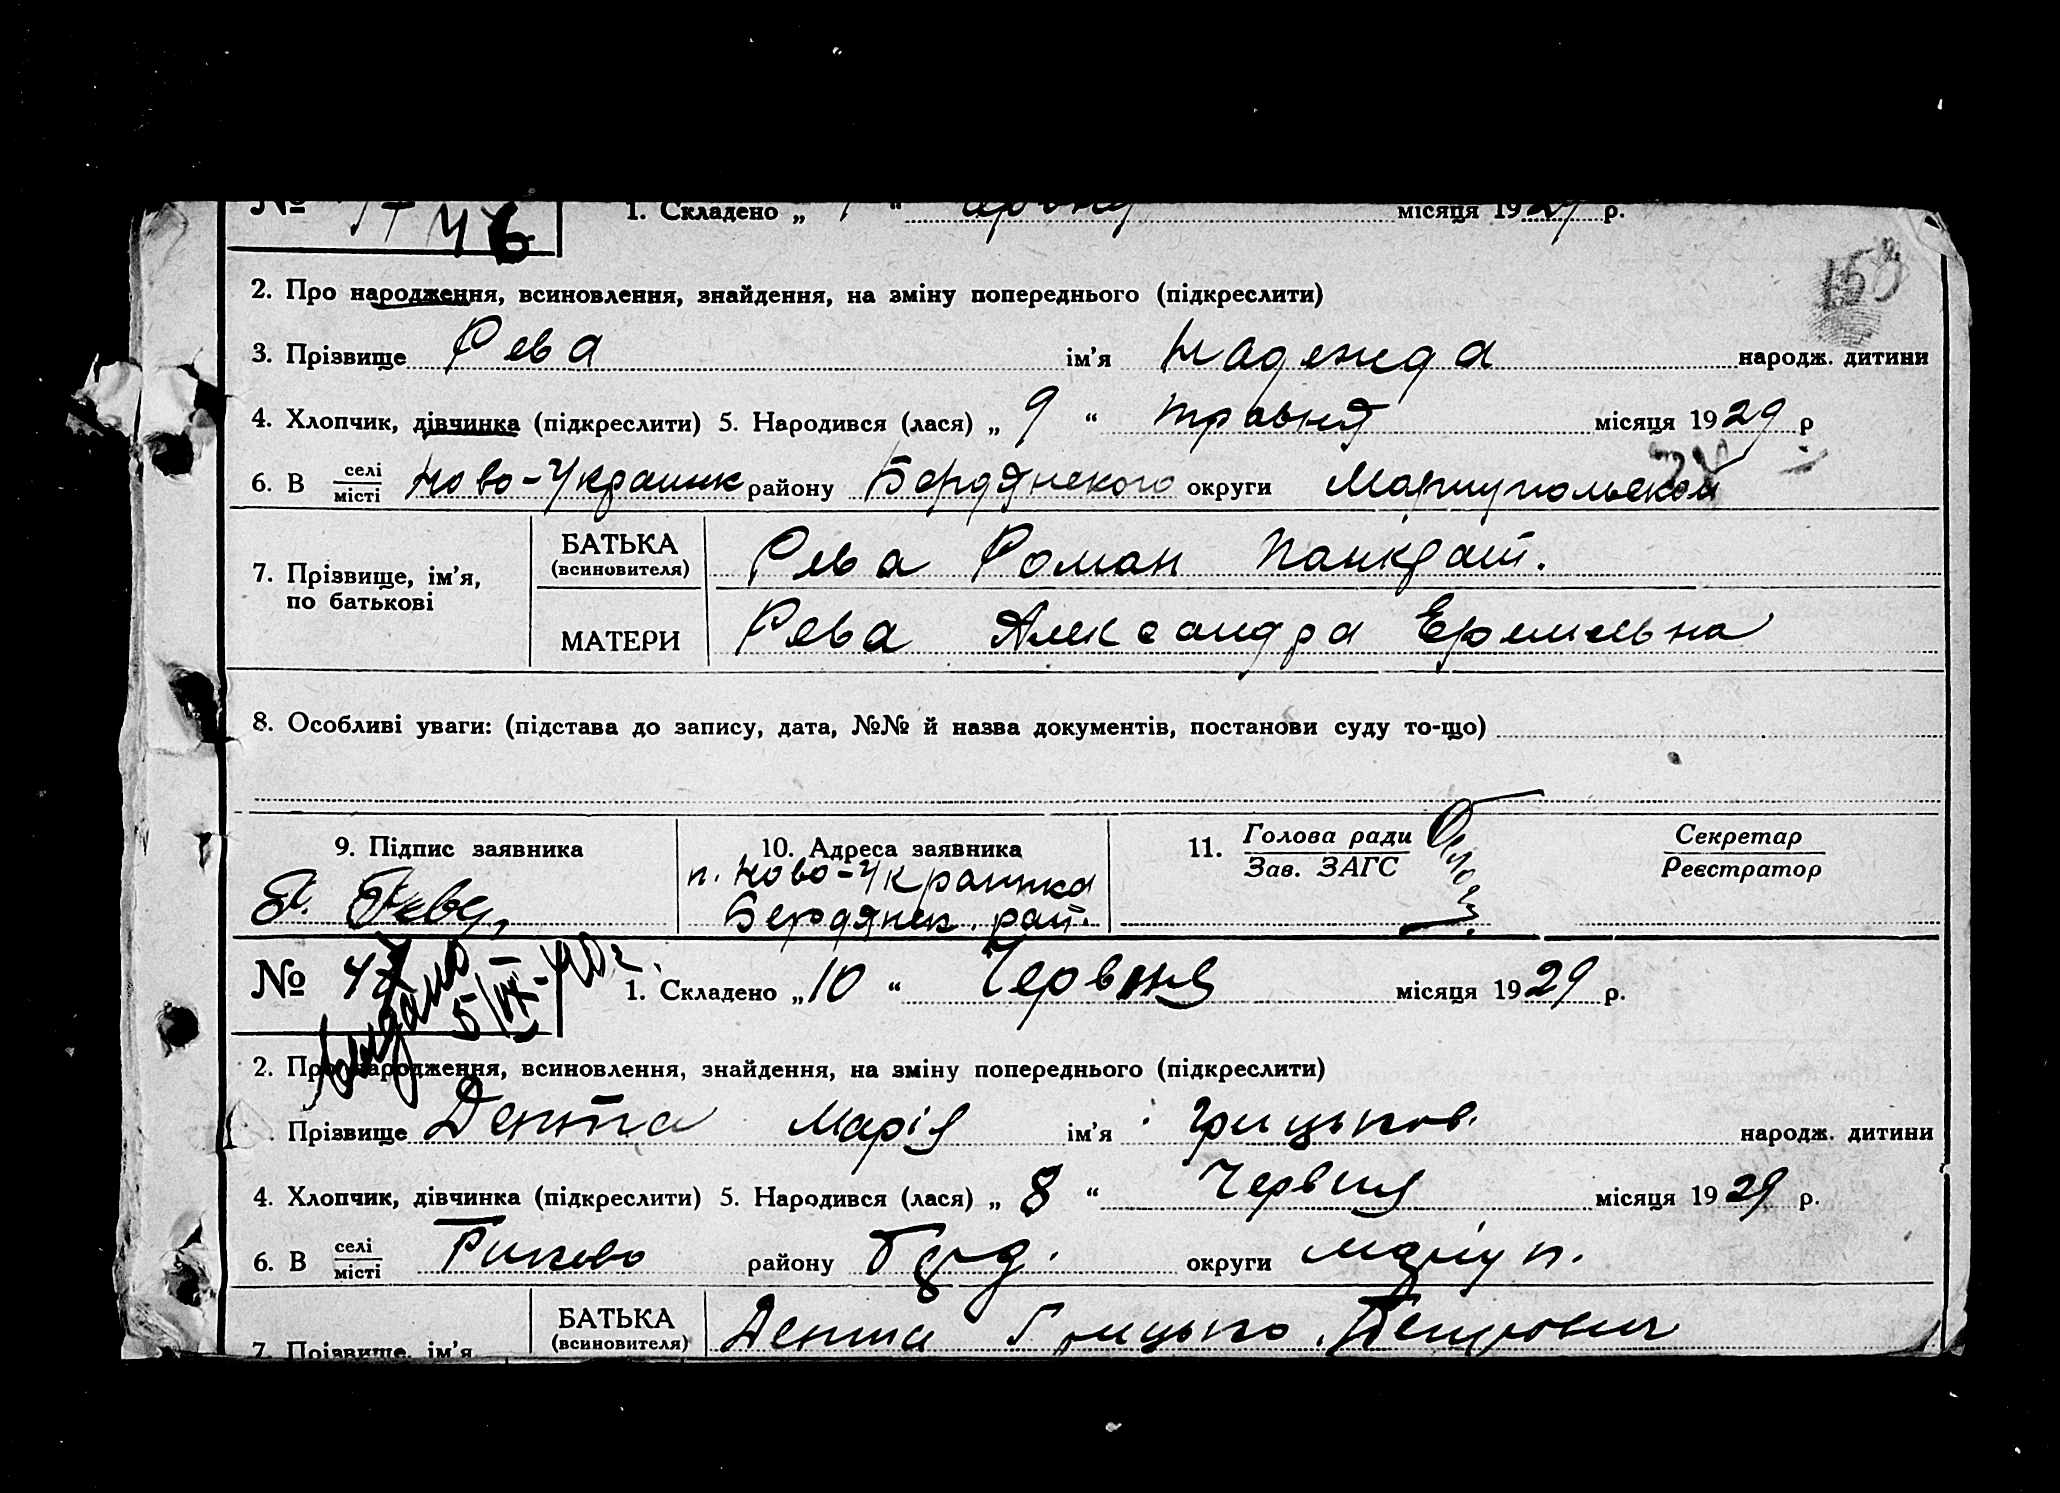 № 46 1. Складено „ “ червня місяця 1929 р.
158
2. Про народження, всиновлення, знайдення, на зміну попереднього (підкреслити)
3. Прізвище Рева ім’я Надежда народж. дитини
4. Хлопчик, дівчинка (підкреслити) 5. Народився (лася) „ 9 “ травня місяця 1929 р
6. В селі/місті Ново-Украинк району Бердянского округи Мариупольской
БАТЬКА (всиновителя) Рева Роман Панкрат.
7. Прізвище, ім’я, по батькові
МАТЕРИ Рева Александра Ермильвна
8. Особливі уваги: (підстава до запису, дата, №№ й назва документів, постанови суду то-що)
9. Підпис заявника 10. Адреса заявника 11. Голова ради/Зав. ЗАГС Секретар/Реєстратор
Рева п. Ново-Украинка
Бердянск. рай.
№ 47 1. Складено „ 10 “ Червня місяця 1929 р.
2. Про народження, всиновлення, знайдення, на зміну попереднього (підкреслити)
Прізвище Дента Марія ім’я Грицьков. народж. дитини
4. Хлопчик, дівчинка (підкреслити) 5. Народився (лася) „ 8 “ Червня місяця 1929 р.
6. В селі/місті району Берд. округи Маріуп.
7. Прізвище, ім’я БАТЬКА (всиновителя) Дента Грицько Петрович